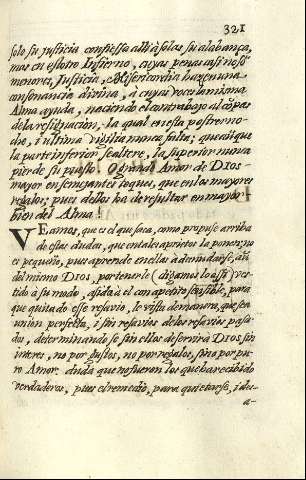 321
solo su justicia confiesso alli à solas su alabança,
mas en estotro Infierno, cuyas penas assi no sõ
menores, Justicia, y Misericordia hazen una
consonancia divina, à cuyas voces la misma
Alma ayuda, naciendo el contrabajo al còpas
de la resignacion, la qual en esta postrer no-
che, i ultima vigilia nunca falta; que aũque
la parte inferior se altere, la superior nunca
pierde su puesto. O gran Amor de DIOS
mayor en semejantes toques, que en los mayores
regalos; pues dellos ha de resultar en mayor
bien del Alma!
VEamos, que es el que soca, como propuse arriba
de estas dudas, que en tal aprieto la ponen; no
es pequeño, pues aprende en ellas à desnudarse, aũ
del mismo DIOS, por tenerle (digamoslo assi) ves-
tido à su modo, asida à el con apetito sensible, para
que quitado esse resavio, le vista de manera, que sea
union perfecta, i sin resavios de los resavios pasa-
dos, determinandose sin ellos de servir à DIOS sin
interes, no por gustos, no por regalos, sino por pu-
ro Amor. duda que no fueron los que ha recibido
verdaderos, pues el remedio, para quietarse, i des-
a-